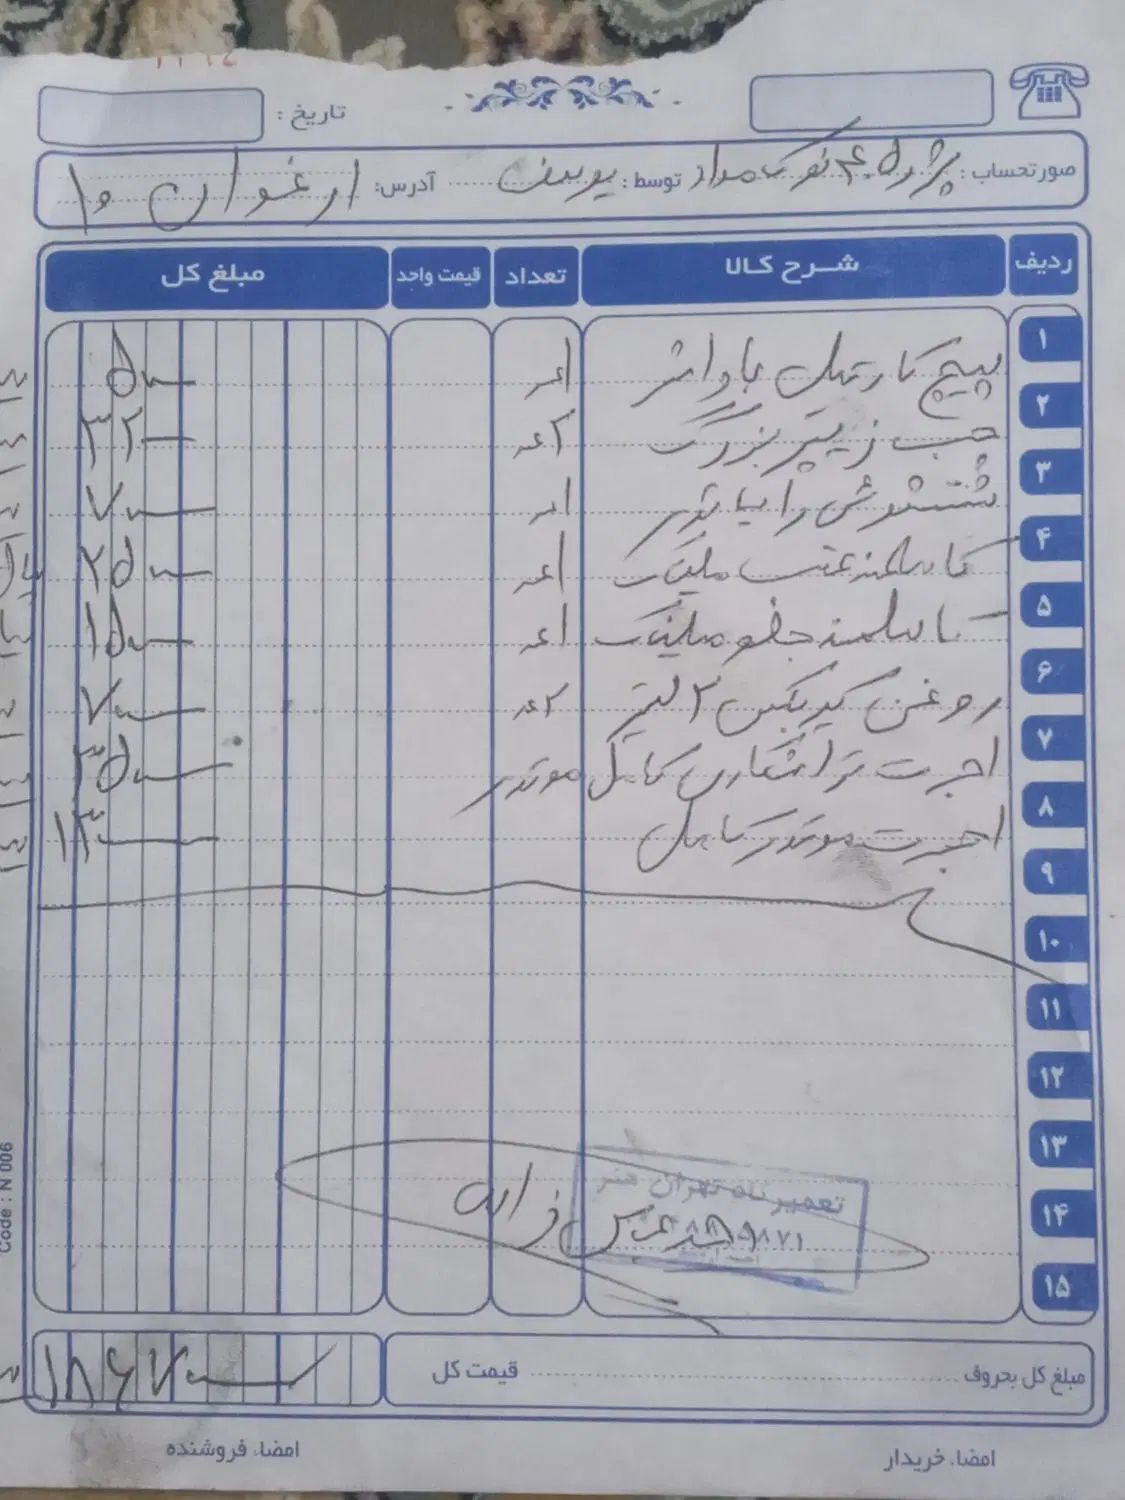 تاریخ :
صورتحساب : پژو ۴۰۵ نوک مداد توسط : یوسف آدرس: ارغوان ۱۰
ردیف شرح کالا تعداد قیمت واحد مبلغ کل
۱ پیچ کارتل با واشر ۱عدد ۵
۲ چسب زیپر بزرگ ۲عدد ۳۲
۳ شستشوی رادیاتور ۱عدد ۷
۴ کاسه نمد عقب میلنگ ۱عدد ۲۵
۵ کاسه نمد جلو میلنگ ۱عدد ۱۵
۶ روغن گیربکس ۲ لیتر ۲عدد ۷
۷ اجرت تراشکاری کامل موتور ۳۵
۸ اجرت موتور کامل ۱۳
۹
۱۰
۱۱
۱۲
۱۳
۱۴ تعمیرگاه تهران هنر
۱۵
مبلغ کل بحروف قیمت کل ۱۸۶۷
امضاء خریدار امضاء فروشنده
Code : N 006